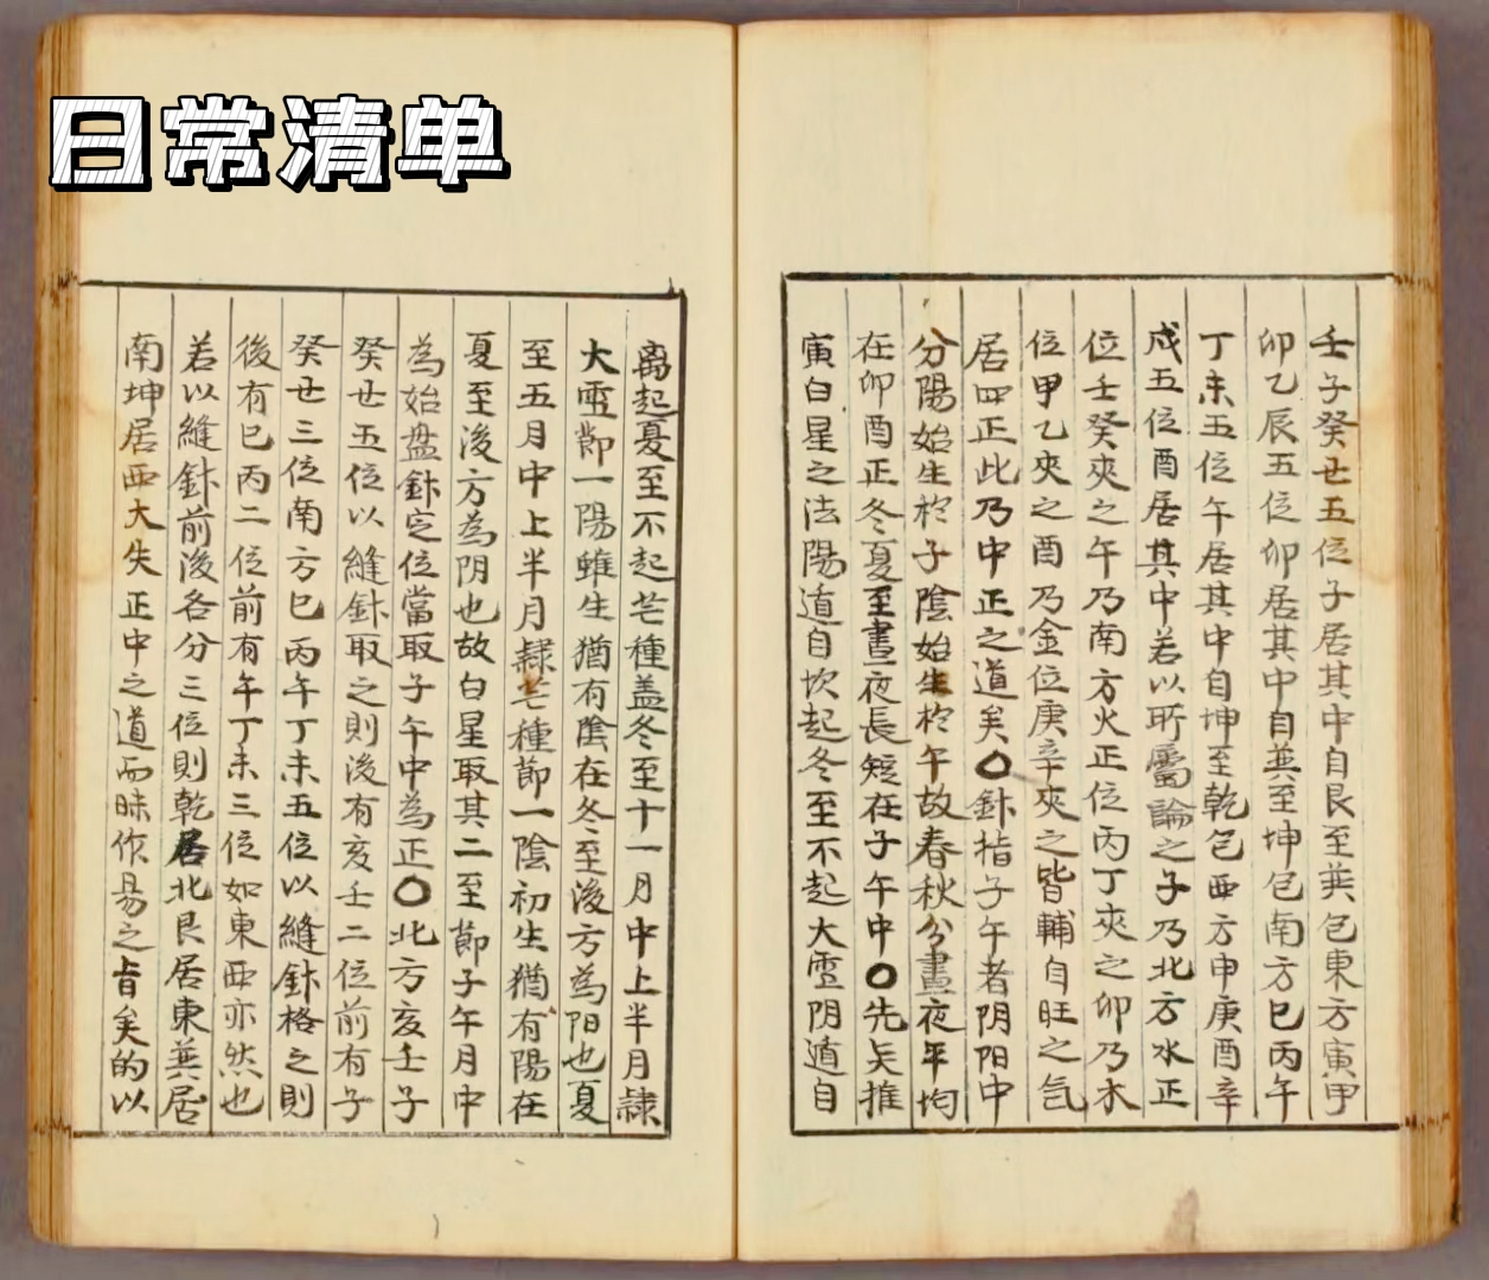 日常清单
壬子癸丑五位子居其中自艮至巽包東方寅甲
卯乙辰五位卯居其中自巽至坤包南方巳丙午
丁未五位午居其中自坤至乾包西方申庚酉辛
戌五位酉居其中若以所屬論之子乃北方水正
位壬癸夾之午乃南方火正位丙丁夾之卯乃木
位甲乙夾之酉乃金位庚辛夾之皆輔自旺之气
居四正此乃中正之道矣〇針指子午者阴阳中
分陽始生於子陰始生於午故春秋分晝夜平均
在卯酉正冬夏至晝夜長短在子午中〇先天推
寅白星之法陽遁自坎起冬至不起大雪阴遁自
离起夏至不起芒種盖冬至十一月中上半月隸
大雪節一陽雖生猶有陰在冬至後方為阳也夏
至五月中上半月隸芒種節一陰初生猶有陽在
夏至後方為阴也故白星取其二至節子午月中
為始盘針定位當取子午中為正〇北方亥壬子
癸丑五位以縫針取之則後有亥壬二位前有子
癸丑三位南方巳丙午丁未五位以縫針格之則
後有巳丙二位前有午丁未三位如東西亦然也
若以縫針前後各分三位則乾居北艮居東巽居
南坤居西大失正中之道而昧作易之旨矣的以